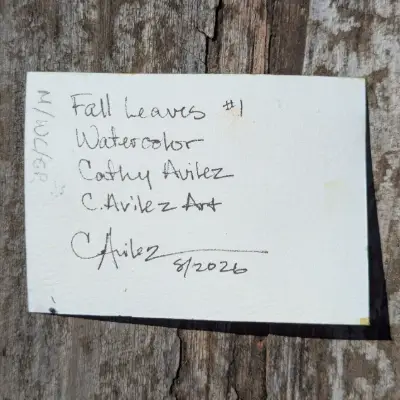 Fall Leaves #1
Watercolor
Cathy Avilez
C. Avilez Art
C Avilez
8/2026